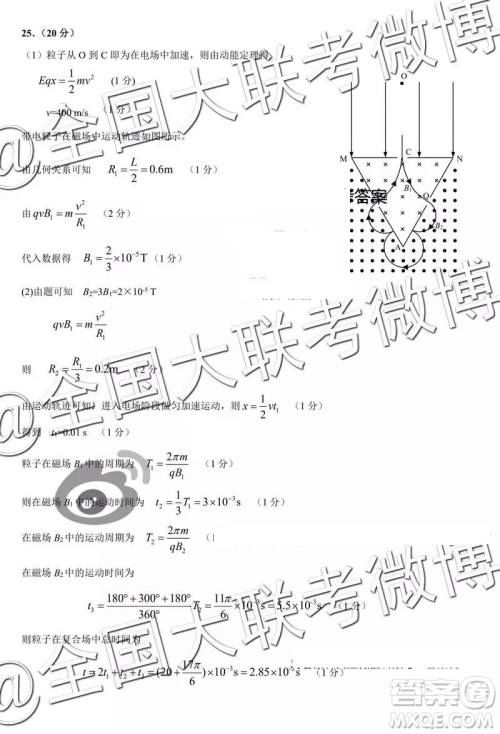 25.（20分）
（1）粒子从O到C即为在电场中加速，则由动能定理得
Eqx=1/2 mv²（1分）
v=400 m/s（1分）
带电粒子在磁场中运动轨迹如图所示。
由几何关系可知 R₁=L/2=0.6m（1分）
由 qvB₁=m v²/R₁（2分）
代入数据得 B₁=2/3×10⁻⁵T（1分）
(2)由题可知 B₂=3B₁=2×10⁻⁵ T
qvB₁=m v²/R₁
则 R₂=R₁/3=0.2m（2分）
由运动轨迹可知：进入电场阶段做匀加速运动，则 x=1/2 vt₁（1分）
得到 t₁=0.01 s（1分）
粒子在磁场 B₁中的周期为 T₁=2πm/qB₁（1分）
则在磁场 B₁中的运动时间为 t₂=1/3 T₁=3×10⁻³s（1分）
在磁场 B₂中的运动周期为 T₂=2πm/qB₂（1
在磁场 B₂中的运动时间为
t₃=(180°+300°+180°)/360° T₂=11π/6×10⁻³s=5.5×10⁻³s（1分）
则粒子在复合场中总时间为
t=2t₁+t₂+t₃=(20+17π/6)×10⁻³s=2.85×10⁻²s（1分）
O
M
C
N
B₁
O
B₂
A
答案
@全国大联考微博
@全国大联考微博
答案圈
MXQE.COM